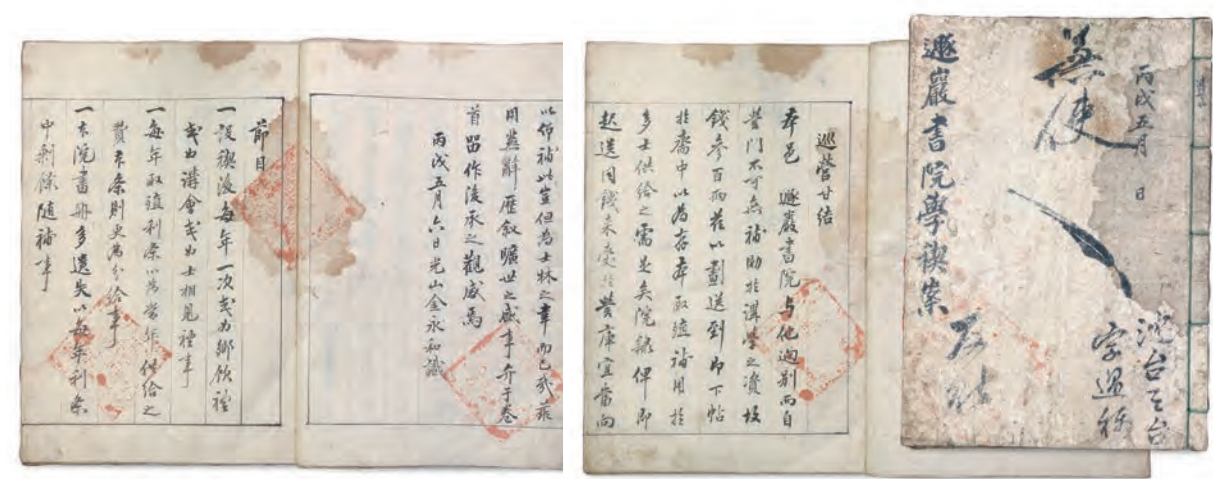 丙戌五月 日
兼使
遯巖書院學禊案
巡營甘結
本邑 遯巖書院与他逈別而自
營門不可無補助於講學之資故
錢參百兩茲以劃送到即下帖
於齋中以爲存本取殖補用於
多士供給之需是矣院隸俾即
起送同錢來受於營庫宜當向
以佈補此豈但爲士林之幸而已哉茲
用蕪辭歷叙曠世之盛事弁于卷
首留作後承之觀感焉
丙戌五月六日光山金永和識
節目
一設禊後每年一次或爲鄕飮禮
或爲講會或爲士相見禮事
一每年取殖利条以爲當年供給之
費本条則更爲分給事
一本院書冊多遺失以每年利条
中剩餘隨補事